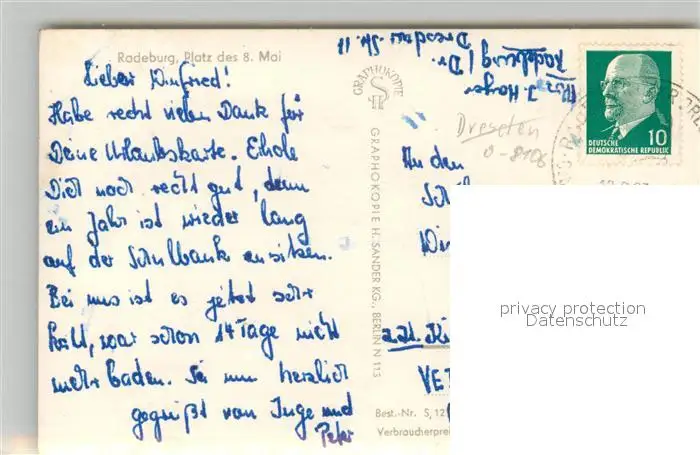 Radeburg, Platz des 8. Mai
Lieber Winfried!
Habe recht vielen Dank für
Deine Urlaubskarte. Erhole
Dich noch recht gut, denn
ein Jahr ist wieder lang
auf der Schulbank zu sitzen.
Bei uns ist es jetzt sehr
kalt, war schon 14 Tage nicht
mehr baden. Sei nun herzlich
gegrüßt von Inge und
Peter
GRAPHOKOPIE
GRAPHOKOPIE H. SANDER KG., BERLIN N 113
Radeburg / Dr.
Dresdner-Str. 11
Dresden
0-8106
An den
z.Zt.
VE
Best.-Nr. S, 12
Verbraucherpre
10
DEUTSCHE
DEMOKRATISCHE REPUBLIK
privacy protection
Datenschutz